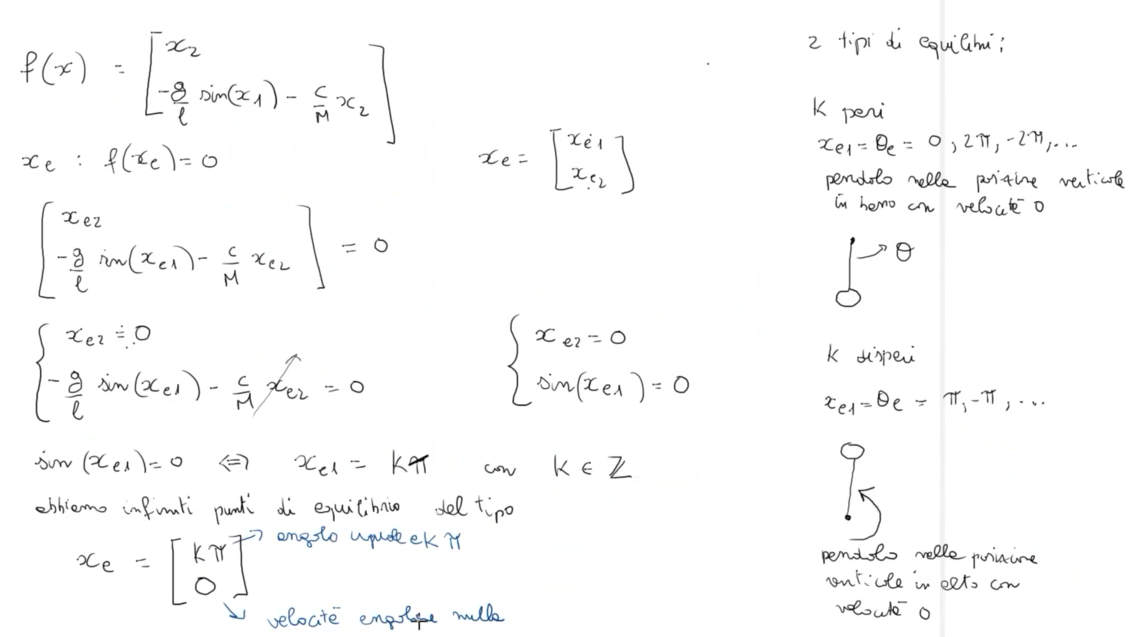 f(x) = [ x₂
-g/l sin(x₁) - c/M x₂ ]
x_e : f(x_e) = 0
x_e = [ x_e1
x_e2 ]
[ x_e2
-g/l sin(x_e1) - c/M x_e2 ] = 0
{ x_e2 = 0
-g/l sin(x_e1) - c/M x_e2 = 0
{ x_e2 = 0
sin(x_e1) = 0
sin(x_e1) = 0 ⇔ x_e1 = Kπ con K ∈ ℤ
abbiamo infiniti punti di equilibrio del tipo
x_e = [ Kπ
0 ]
→ angolo uguale a Kπ
↘ velocità angolare nulla
2 tipi di equilibri:
K pari
x_e1 = θ_e = 0, 2π, -2π, ...
pendolo nella posizione verticale
in basso con velocità 0
θ
K dispari
x_e1 = θ_e = π, -π, ...
pendolo nella posizione
verticale in alto con
velocità 0